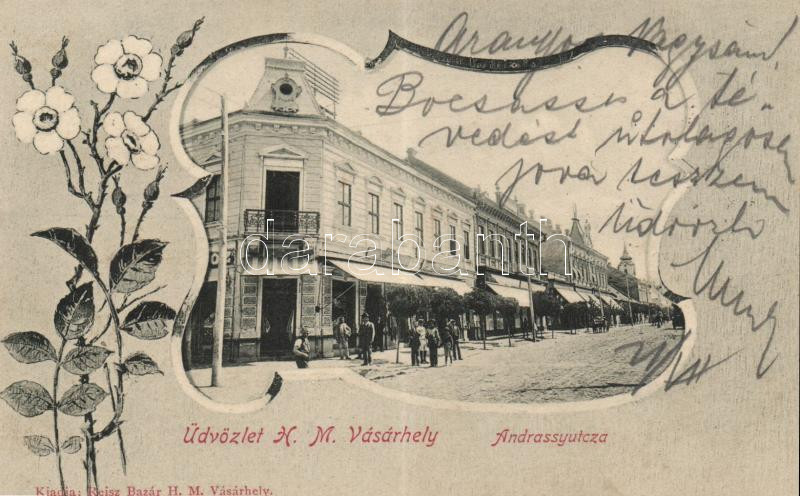 Aranyos Nagysám!
Bocsássa a té-
vedést útólagosan
jóvá teszem
Üdvözlő
darabanth.com
Üdvözlet H. M. Vásárhely Andrassyutcza
Kiadja: Reisz Bazár H. M. Vásárhely.